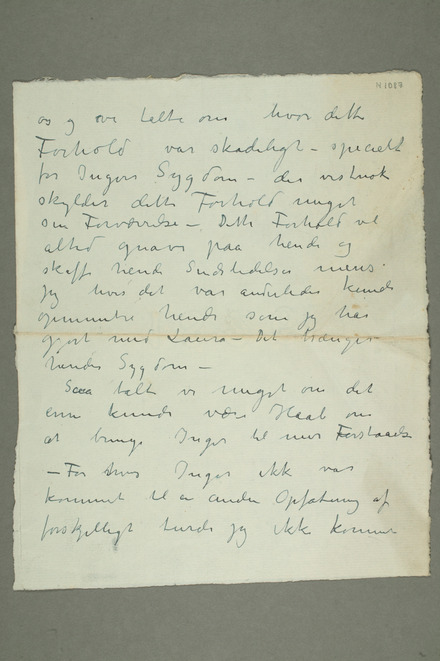 N 1087
os og vi talte om hvor dette
Forhold var skadeligt – specielt
for Ingers Sygdom – der vistnok
skylder dette Forhold meget
sin Forværrelse – Dette Forhold vil
altid gnave paa hende og
skaffe hende Sindslidelser mens
jeg hvis det var anderledes kunde
opmuntre hende som jeg har
gjort med Laura – Det trænger
hendes Sygdom –
Saa talte vi meget om det
enu kunde være Haab om
at bringe Inger til mer Forstaaelse
– For hvis Inger ikke var
kommet til en anden Opfatning af
forskjelligt turde jeg ikke komme